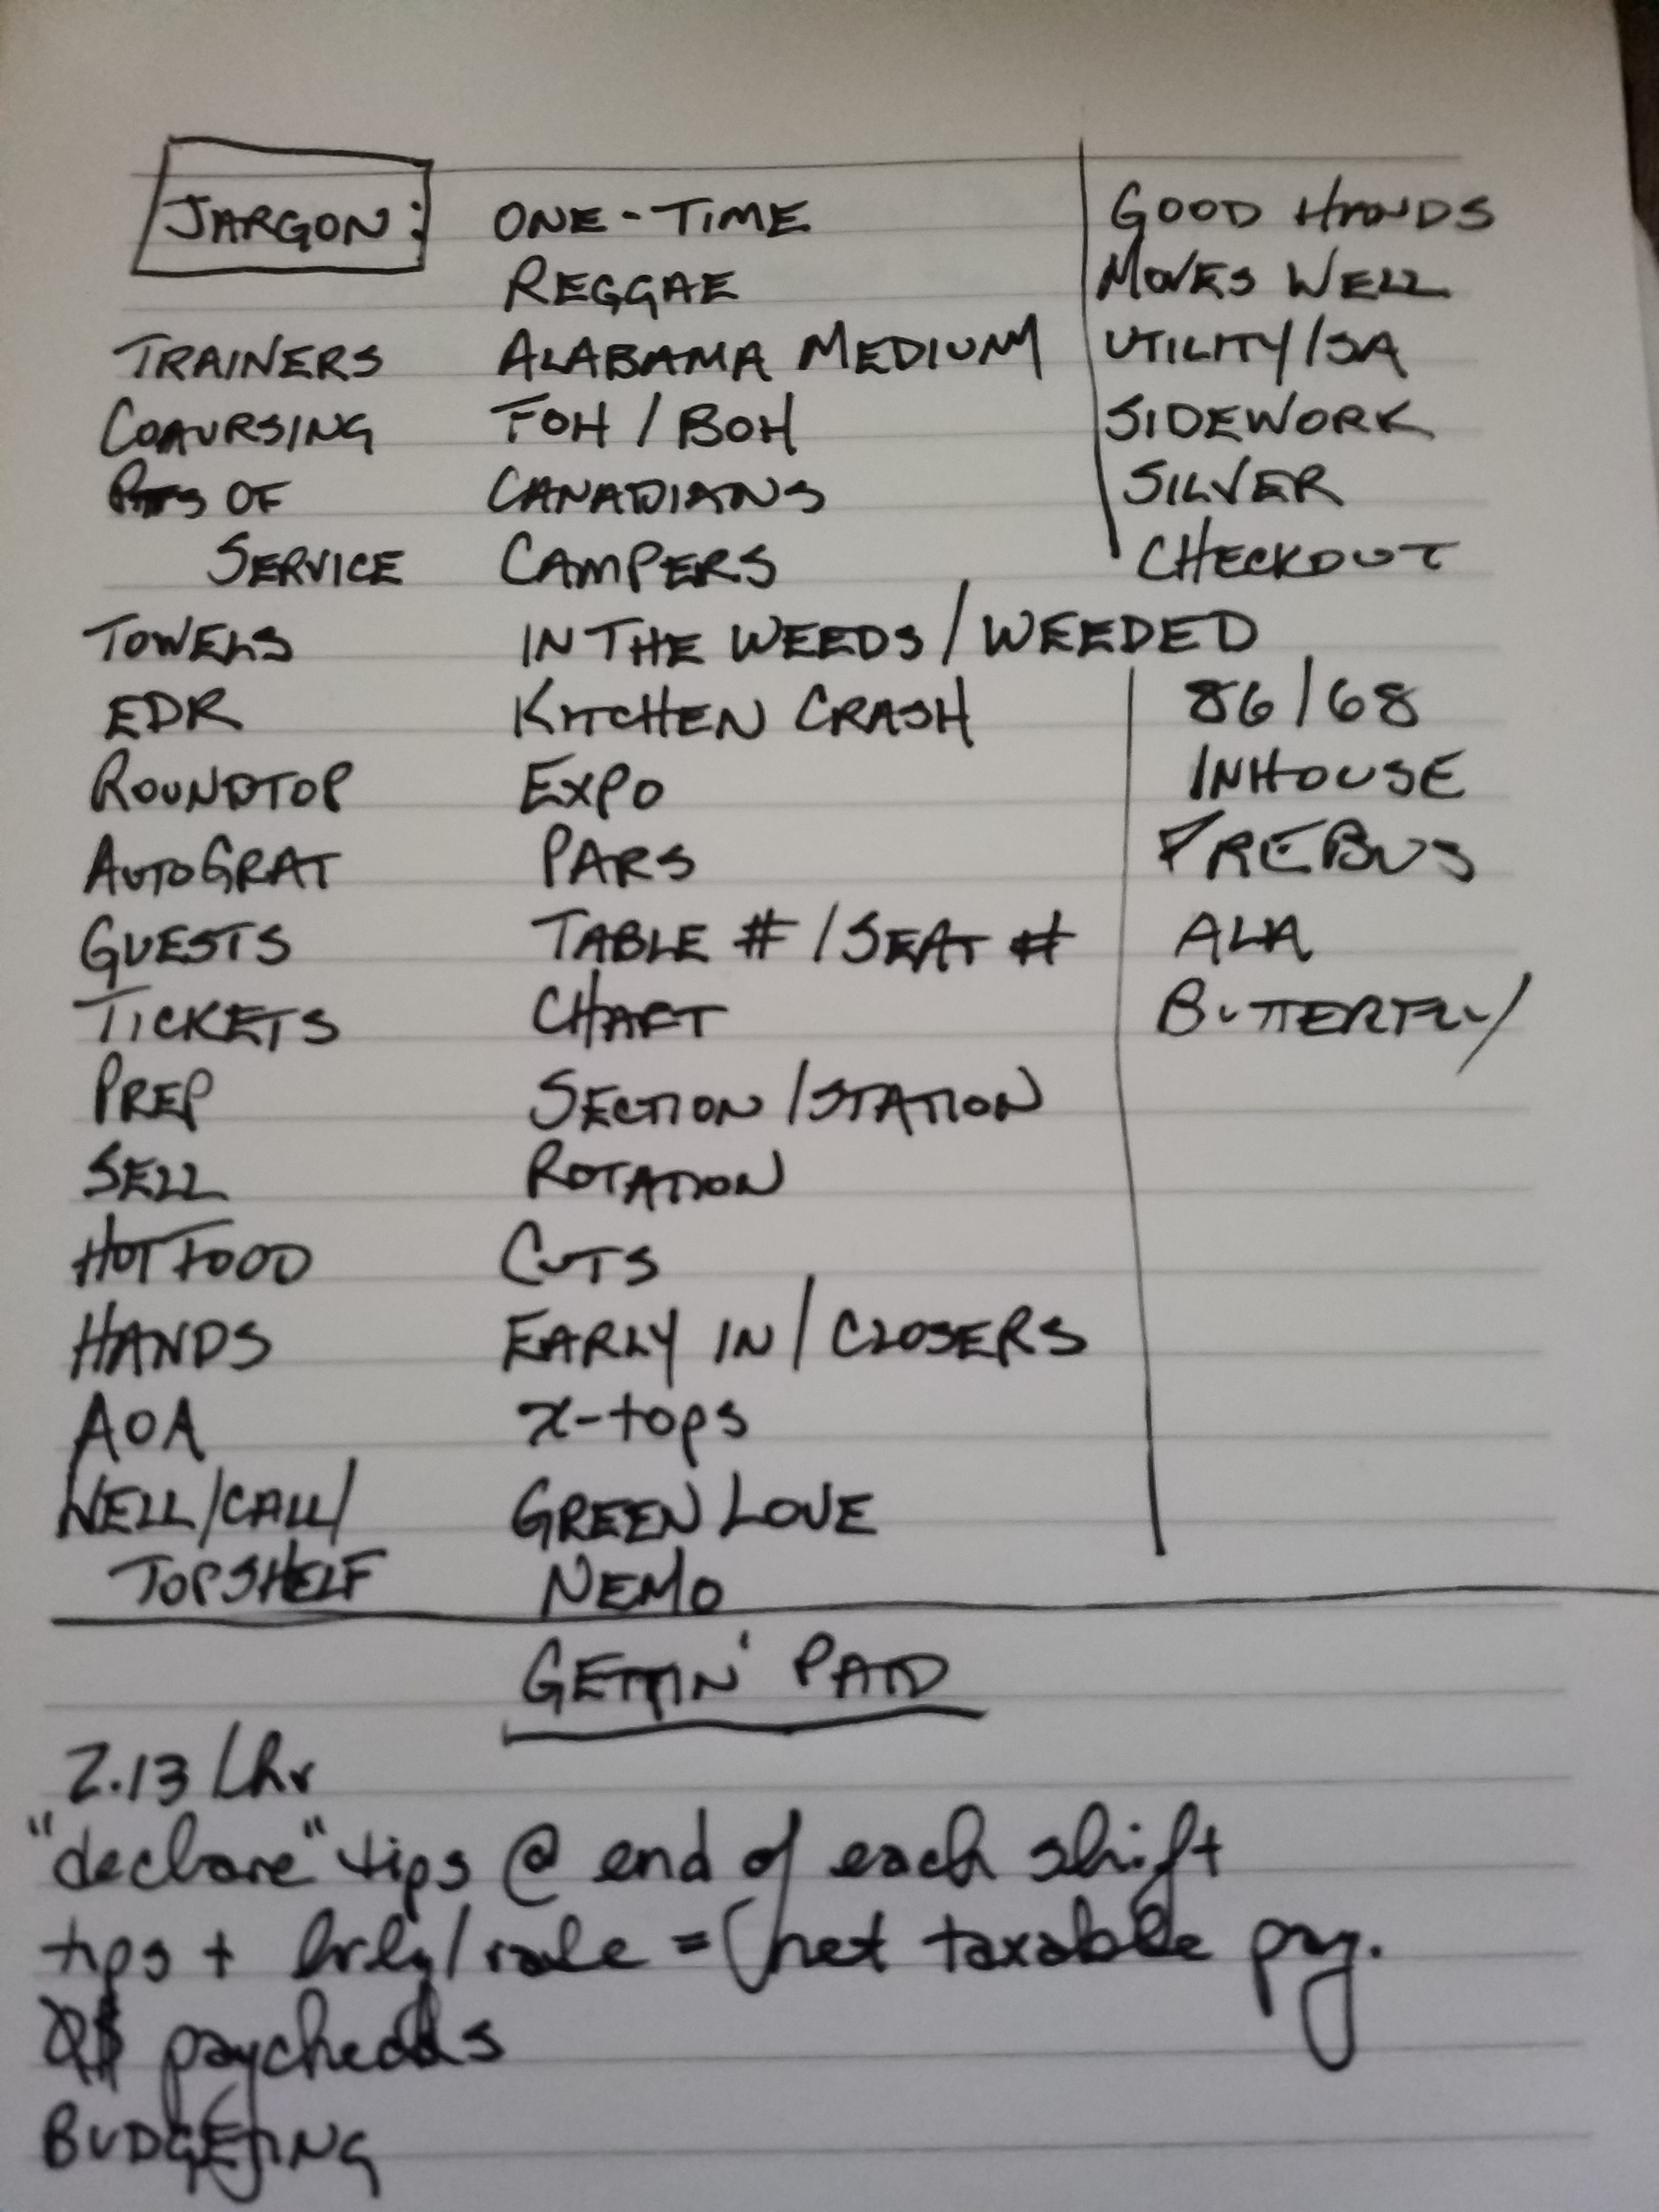 JARGON:
TRAINERS
COAURSING
PTS OF
SERVICE
TOWELS
EDR
ROUNDTOP
AUTOGRAT
GUESTS
TICKETS
PREP
SELL
HOT FOOD
HANDS
AOA
WELL/CALL/
TOPSHELF
ONE-TIME
REGGAE
ALABAMA MEDIUM
FOH / BOH
CANADIANS
CAMPERS
IN THE WEEDS / WEEDED
KITCHEN CRASH
EXPO
PARS
TABLE # / SEAT #
CHART
SECTION / STATION
ROTATION
CUTS
EARLY IN / CLOSERS
x-tops
GREEN LOVE
NEMO
GOOD HANDS
MOVES WELL
UTILITY/SA
SIDEWORK
SILVER
CHECKOUT
86/68
INHOUSE
PREBUS
ALA
BUTTERFLY
GETTIN' PAID
2.13/hr
"declare" tips @ end of each shift
tips + hrly/rate = net taxable pay.
paychecks
BUDGETING